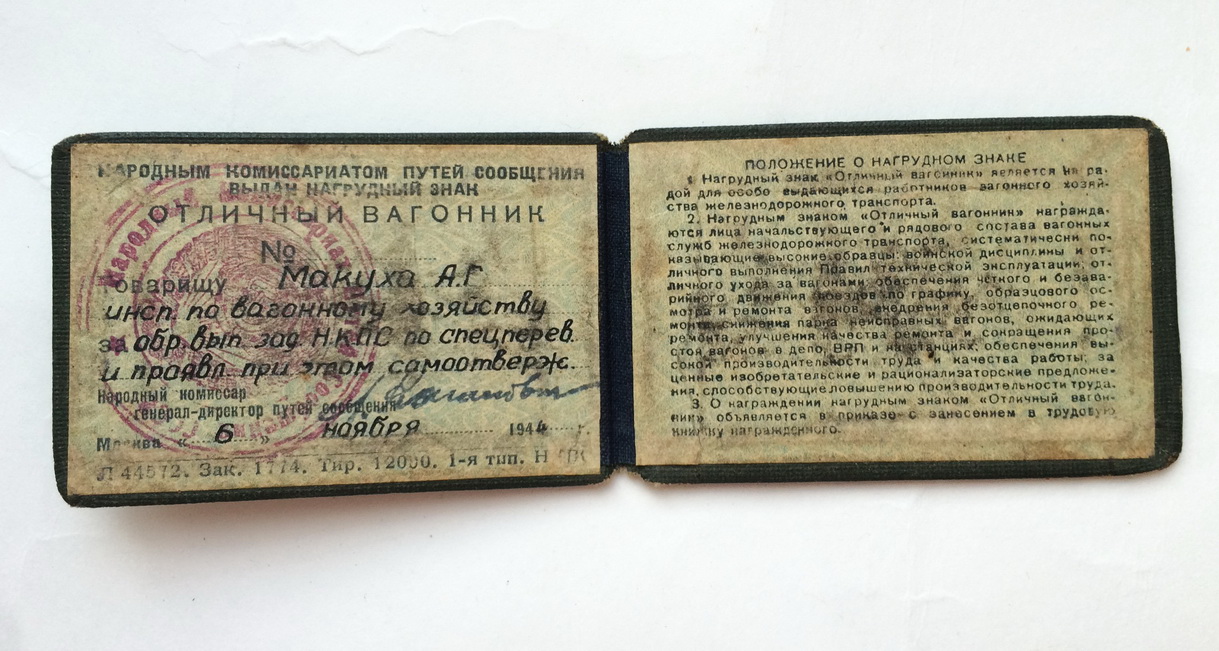 НАРОДНЫМ КОМИССАРИАТОМ ПУТЕЙ СООБЩЕНИЯ
ВЫДАН НАГРУДНЫЙ ЗНАК
ОТЛИЧНЫЙ ВАГОННИК
№
товарищу Макуха А.Г
инсп. по вагонному хозяйству
за обр. вып. зад НКПС по спецперев.
и проявл. при этом самоотверж.
Народный комиссар
генерал-директор путей сообщения
Москва « 6 » ноября 1944 г.
Л 44572. Зак. 1774. Тир. 12000. 1-я тип. Н
ПОЛОЖЕНИЕ О НАГРУДНОМ ЗНАКЕ
1 Нагрудный знак «Отличный вагонник» является награ-
дой для особо выдающихся работников вагонного хозяй-
ства железнодорожного транспорта.
2. Нагрудным знаком «Отличный вагонник» награжда-
ются лица начальствующего и рядового состава вагонных
служб железнодорожного транспорта, систематически по-
казывающие высокие образцы: воинской дисциплины и от-
личного выполнения Правил технической эксплуатации; от-
личного ухода за вагонами обеспечения чёткого и безава-
рийного движения поездов по графику, образцового ос-
мотра и ремонта вагонов, внедрения безотцепочного ре-
монта, снижения парка неисправных вагонов, ожидающих
ремонта, улучшения качества ремонта и сокращения про-
стоя вагонов в депо, ВРП и на станциях; обеспечения вы-
сокой производительности труда и качества работы; за
ценные изобретательские и рационализаторские предложе-
ния, способствующие повышению производительности труда.
3. О награждении нагрудным знаком «Отличный вагон-
ник» объявляется в приказе с занесением в трудовую
книжку награжденного.